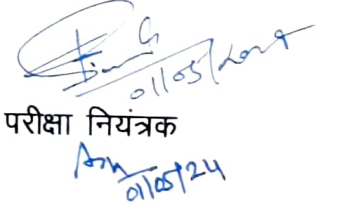 01/05/2024
परीक्षा नियंत्रक
01/05/24